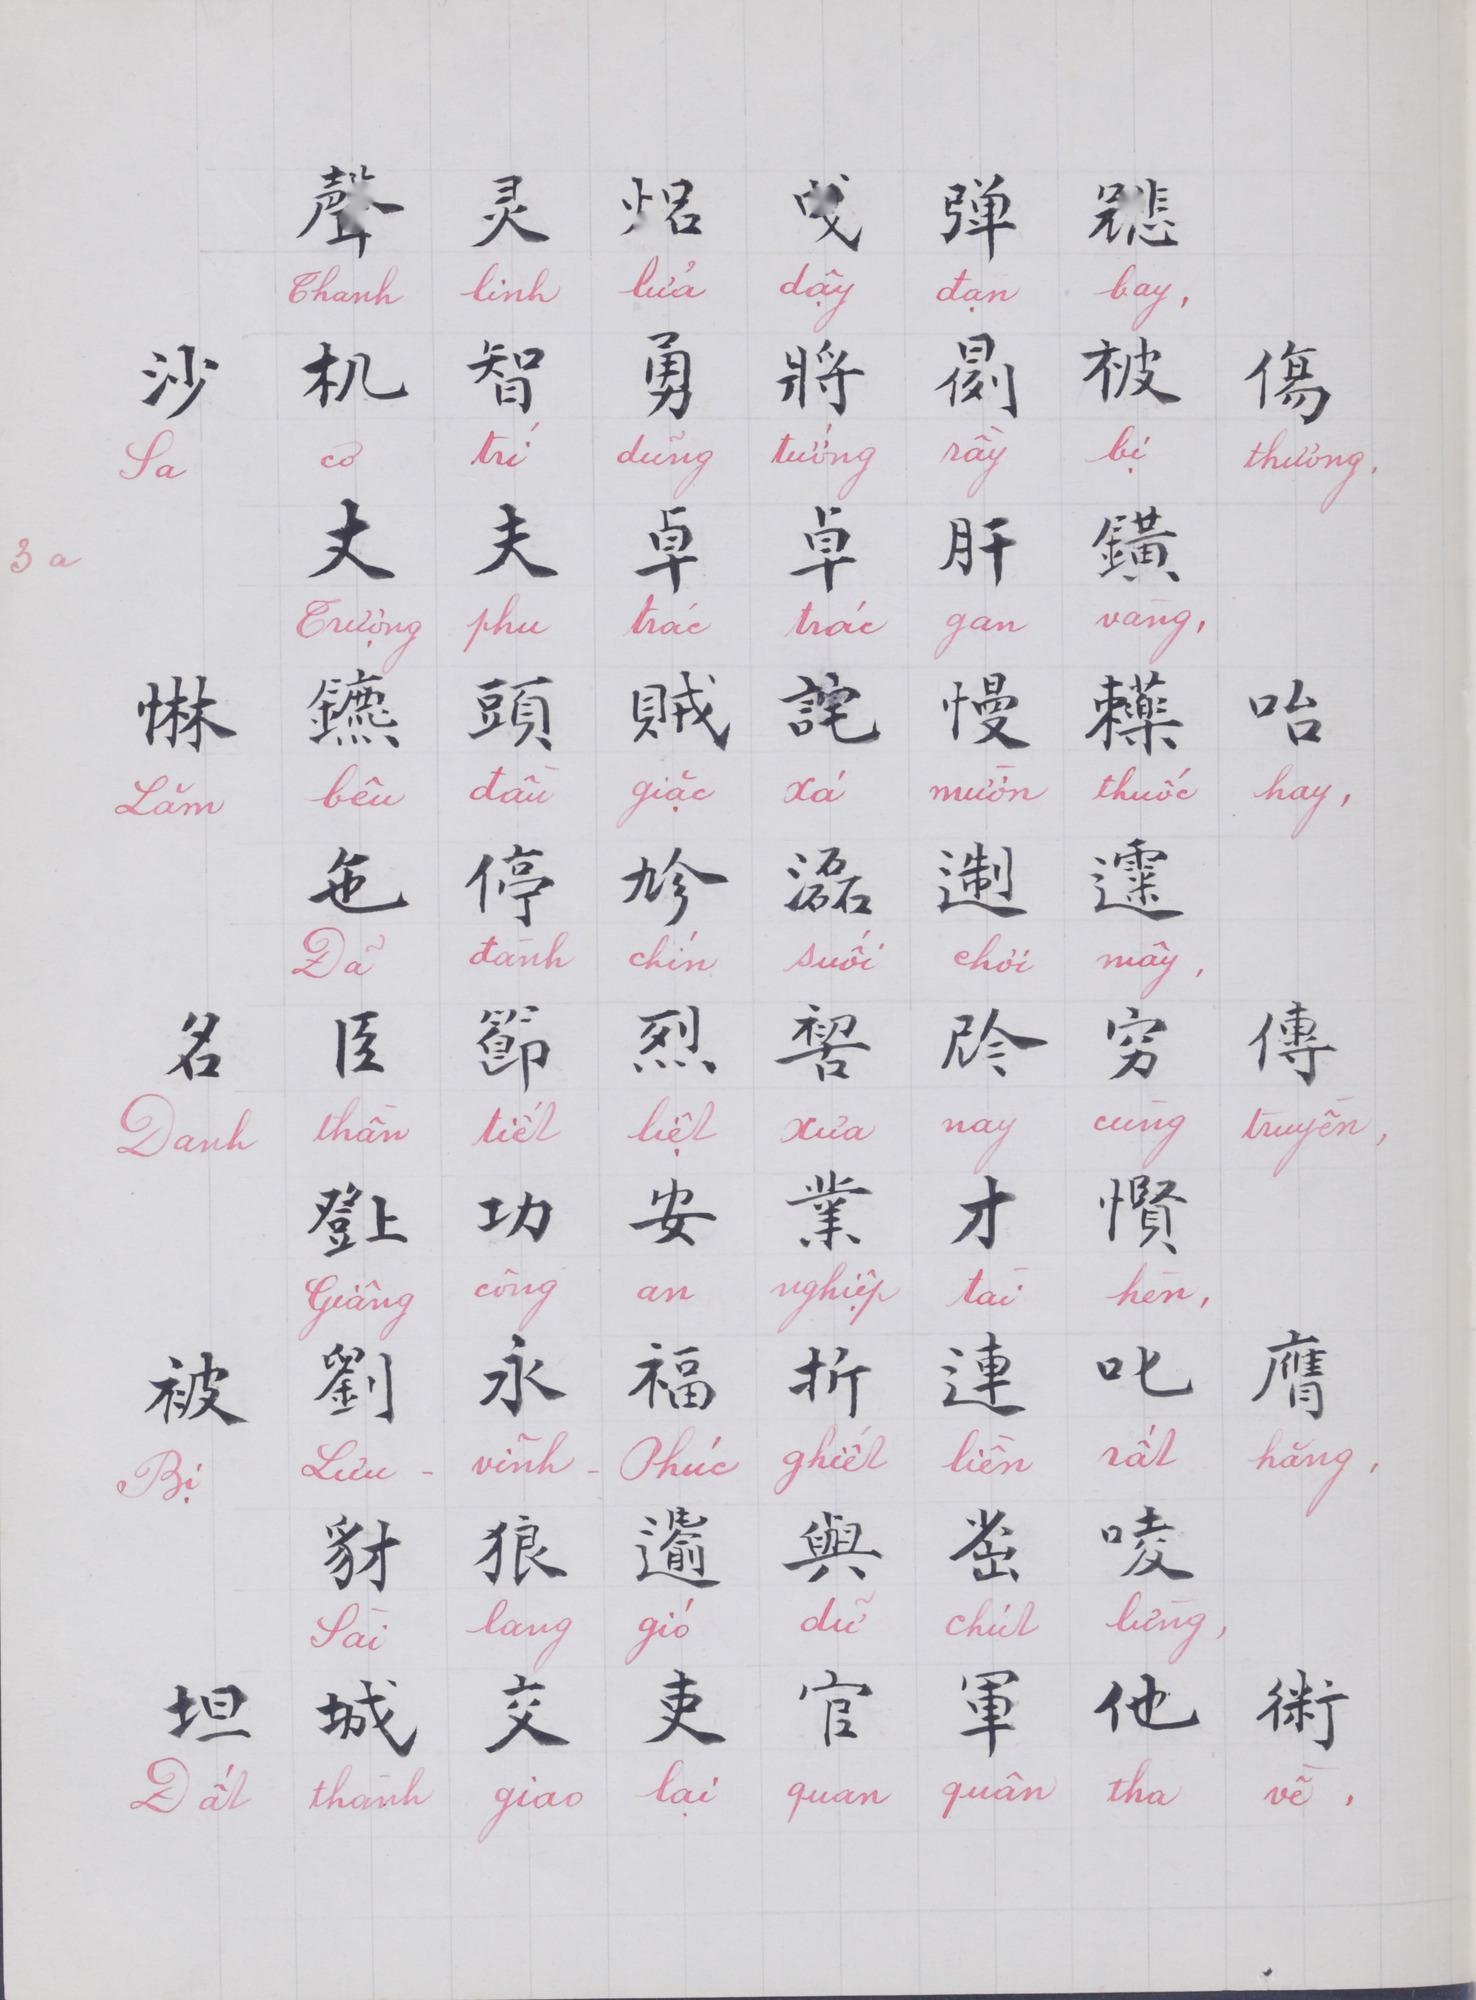 聲灵焒𢩽弹𩙻
Thanh linh lửa dậy đạn bay,
沙机智勇將𠉞被傷
Sa cơ trí dũng tướng rầy bị thương.
3a
丈夫卓卓肝鐄
Trượng phu trác trác gan vàng,
惏鑣頭賊詫慢𧆄咍
Lăm bêu đầu giặc xá mườn thuốc hay,
㐌停𢒂𤂬遭𩄲
Đã đành chín suối chơi mây,
名臣節烈𠸗𠉞穷傳
Danh thần tiết liệt xưa nay cùng truyền,
𤼸功安業才㦓
Giâng công an nghiệp tài hèn,
被劉永福折連叱膺
Bị Lưu-vĩnh-Phúc ghiết liền rất hăng,
豺狼𨗺與𡮇唛
Sài lang gió dữ chút lừng,
坦城交吏官軍他術
Đất thành giao lại quan quân tha về,